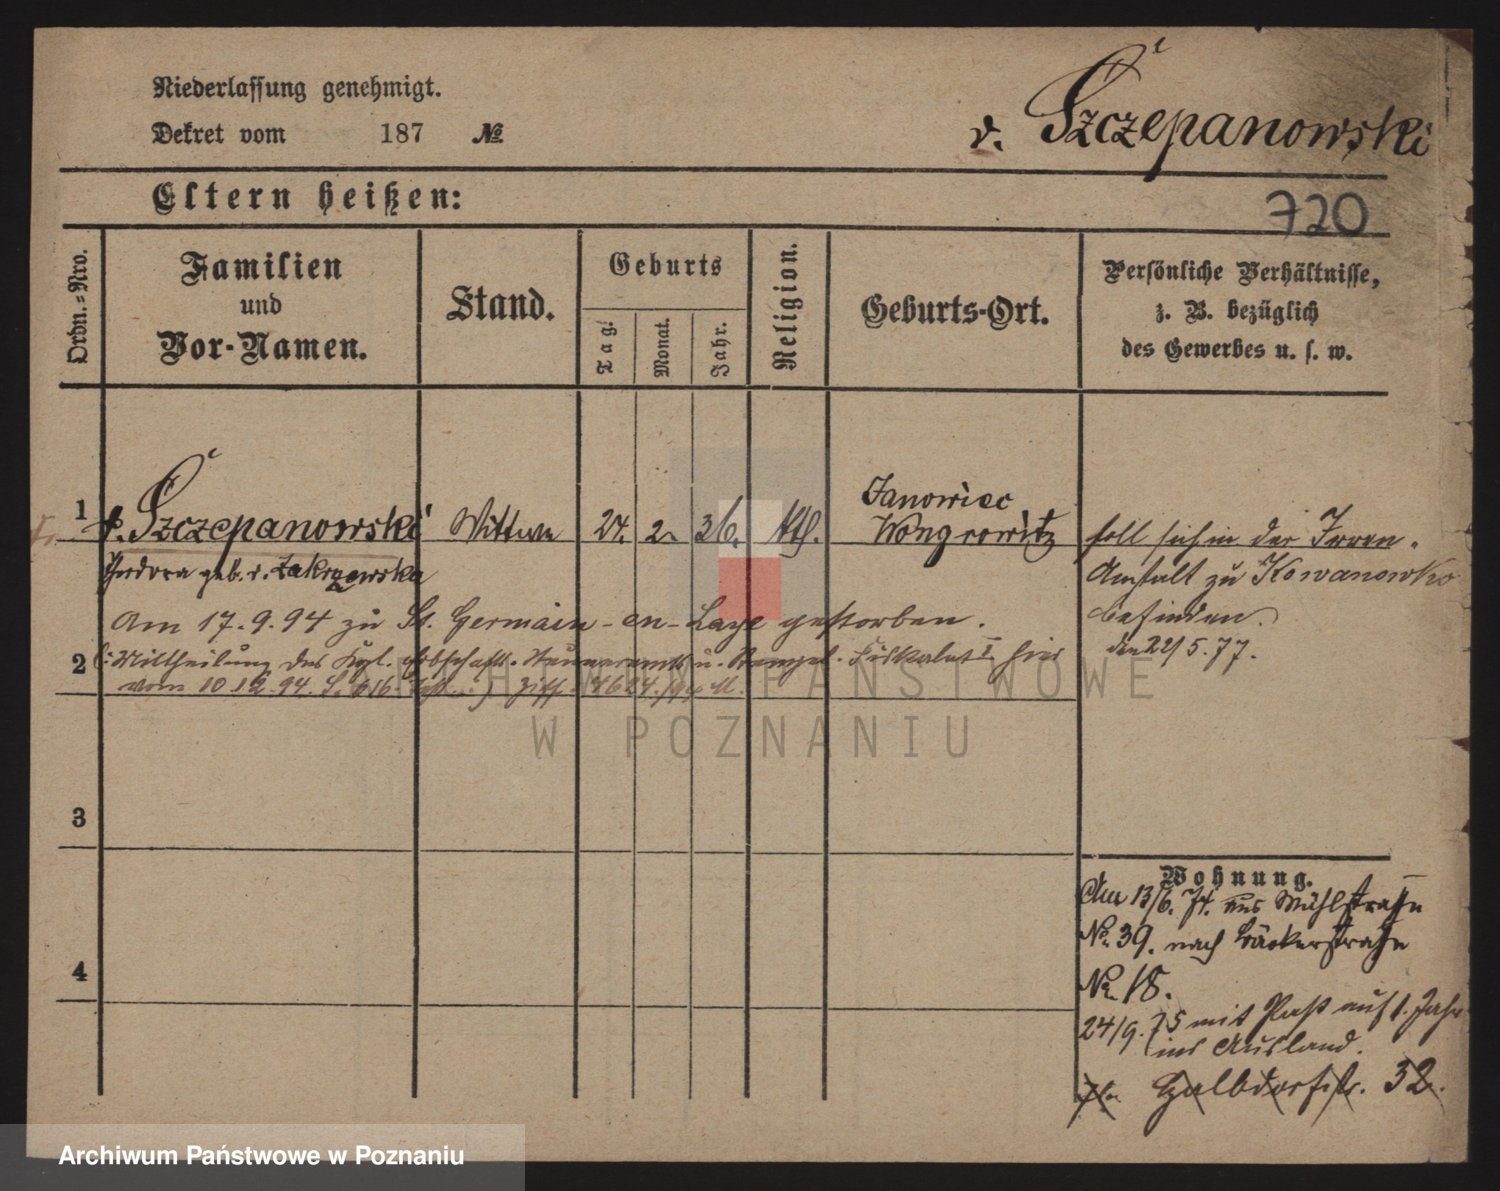 Niederlassung genehmigt.
v. Szczepanowski
Dekret vom 187 №
Eltern heißen:
720
Ordn.=Nro.
Familien
und
Vor-Namen.
Stand.
Geburts
Tag.
Monat.
Jahr.
Religion.
Geburts-Ort.
Persönliche Verhältnisse,
z. B. bezüglich
des Gewerbes u. s. w.
1
v. Szczepanowski
geb. v. Zakrzewska
Wittwe
24. 2. 36.
kth.
Janowiec
Wongrowitz
soll sich in der Irren-
Anstalt zu Kowanowko
befinden.
den 22/5.77.
Am 17.9.94 zu St. Germain-en-Laye gestorben.
2
Mittheilung des Kgl. Erbschafts-Steueramts u. Stempel-Fiskalats I hier
vom 10.12.94.
3
4
Wohnung.
Am 13/6.74. aus Mühlstrasse
No. 39. nach Bäckerstrasse
No. 18.
24/9.75 mit Paß auf 1. Jahr
ins Ausland.
Halbdorfstr. 32.
ARCHIWUM PAŃSTWOWE
W POZNANIU
Archiwum Państwowe w Poznaniu